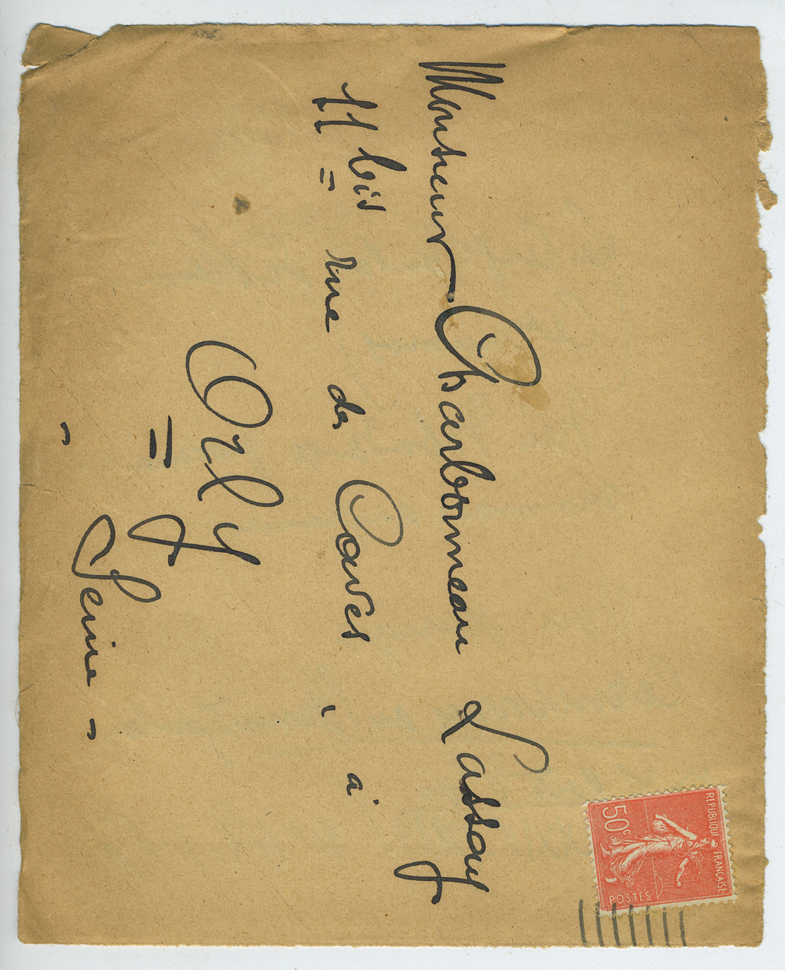 RÉPUBLIQUE FRANÇAISE
50c
POSTES
Monsieur Charbonneau Lassay
11 bis rue des Caves, à
Orly
- Seine -